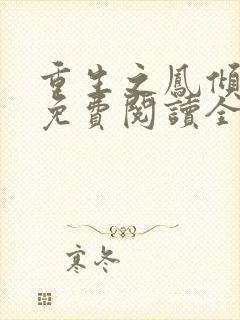 重生之鳳傾
免費閱讀全
寒冬